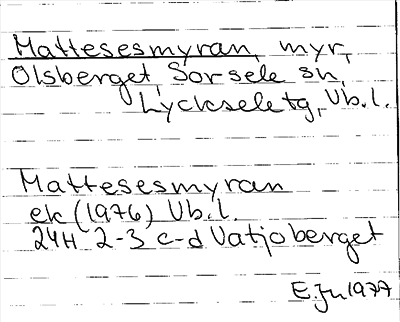 Mattesesmyran, myr,
Olsberget, Sorsele sn,
Lycksele tg, Vb.l.
Mattesesmyran
ek (1976) Vb.l.
24H 2-3 c-d Vatjoberget
E.Ju 1977